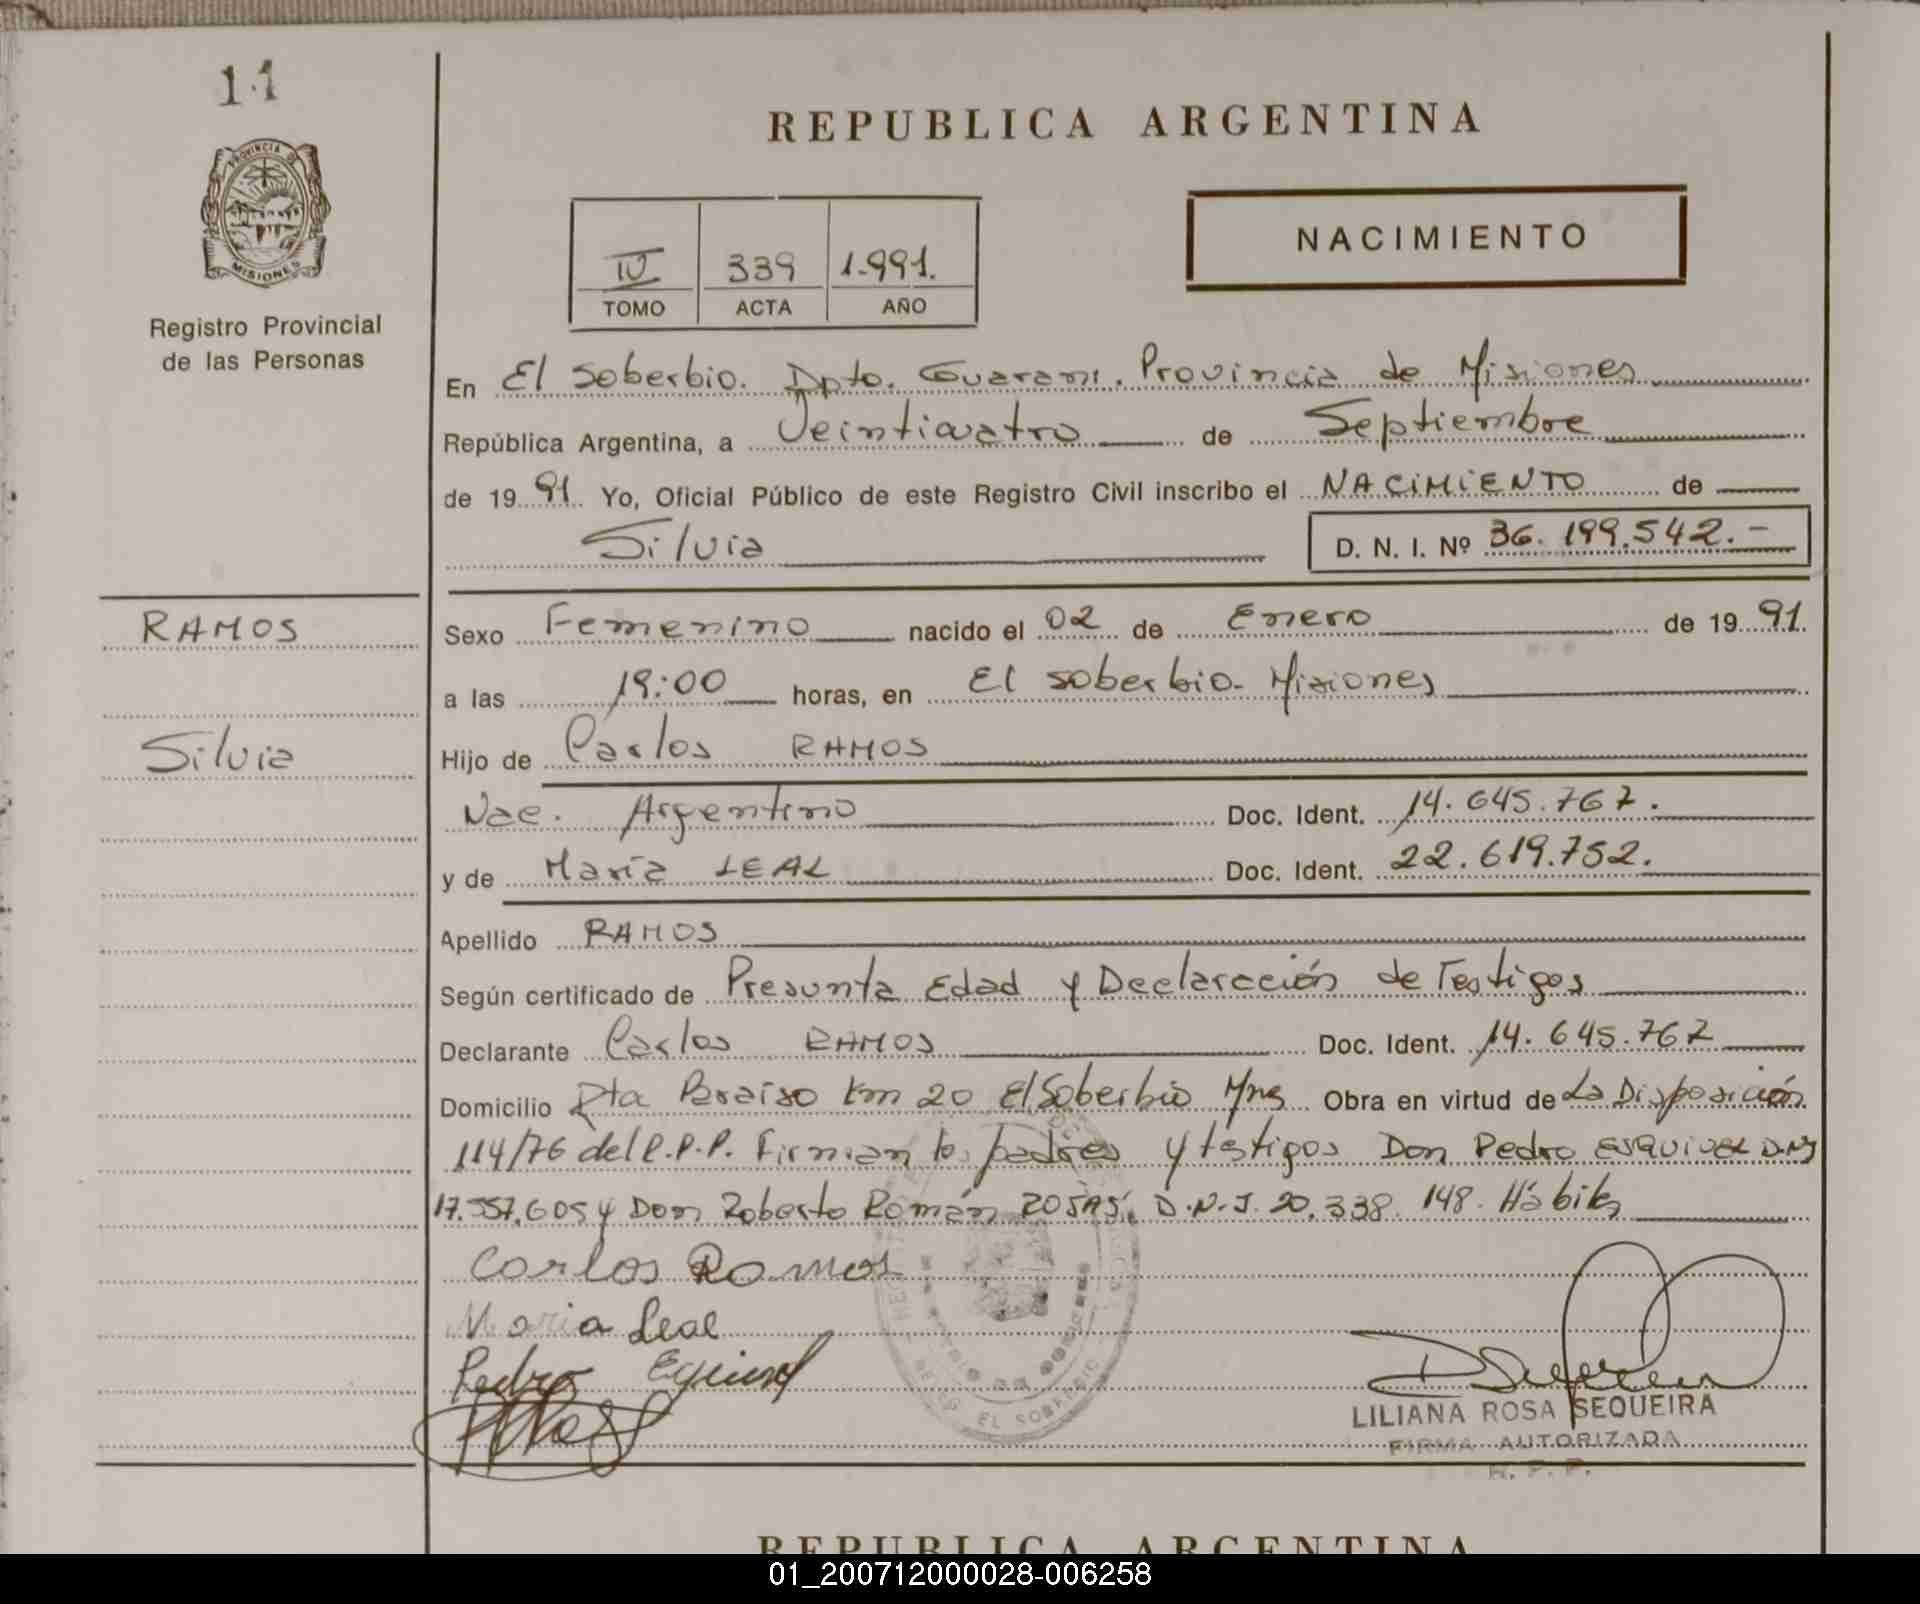 11
PROVINCIA DE
MISIONES
Registro Provincial
de las Personas
RAMOS
Silvia
REPUBLICA ARGENTINA
IV 339 1.991.
TOMO ACTA AÑO
NACIMIENTO
En El Soberbio. Dpto. Guarani. Provincia de Misiones
República Argentina, a Veinticuatro de Septiembre
de 19 91 Yo, Oficial Público de este Registro Civil inscribo el NACIMIENTO de
Silvia D. N. I. Nº 36.199.542.-
Sexo Femenino nacido el 02 de Enero de 19 91.
a las 19:00 horas, en El Soberbio- Misiones
Hijo de Carlos RAMOS
Nac. Argentino Doc. Ident. 14.645.767.
y de María LEAL Doc. Ident. 22.619.752.
Apellido RAMOS
Según certificado de Presunta Edad y Declaración de Testigos
Declarante Carlos RAMOS Doc. Ident. 14.645.767
Domicilio Pta Paraíso Km 20 El Soberbio Mns Obra en virtud de La Disposición
114/76 del R.P.P. Firman los padres y testigos Don Pedro ESQUIVEL DNI
17.557.605 y Don Roberto Román ROJAS, D.N.I. 20.338.148. Hábiles
Carlos Ramos
Maria Leal
Pedro Equivel
LILIANA ROSA SEQUEIRA
FIRMA AUTORIZADA
R. P. P.
EL SOBERBIO
REPUBLICA ARGENTINA
01_200712000028-006258